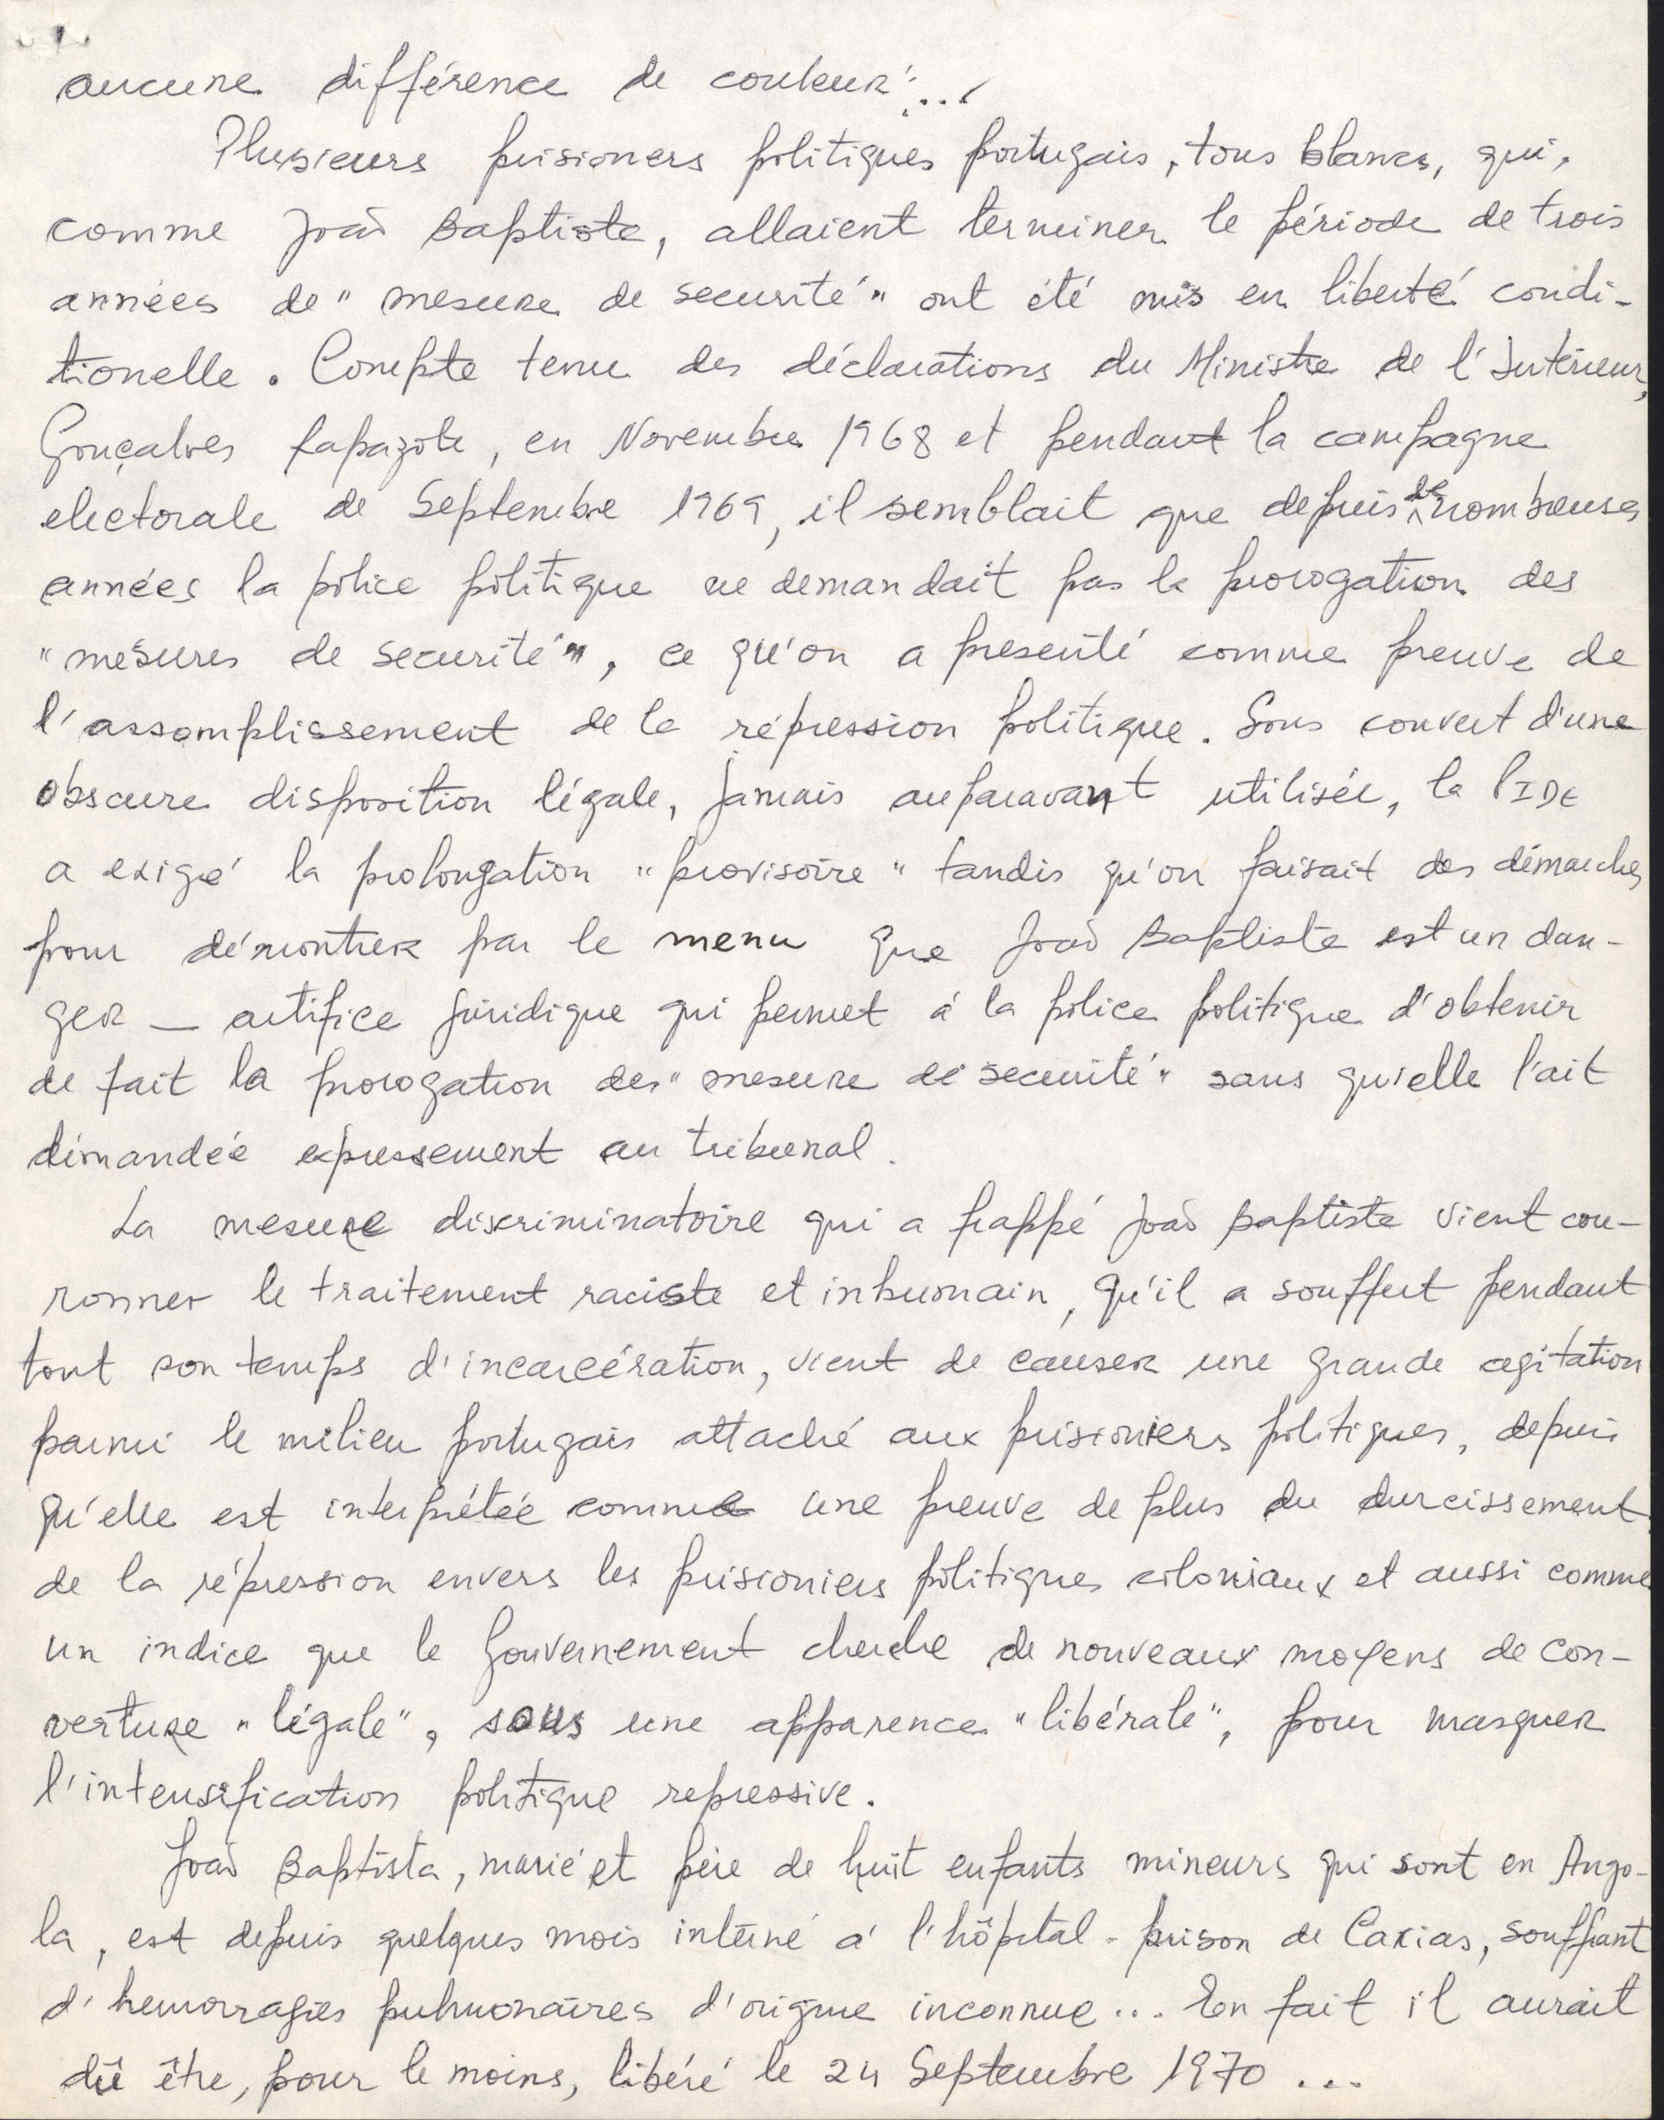 aucune différence de couleur"...
Plusieurs prisioners politiques portugais, tous blancs, qui,
comme João Baptiste, allaient terminer le période de trois
années de "mesure de securité" ont été mis en liberté condi-
tionelle. Compte tenu des déclarations du Ministre de l'Intérieur,
Gonçalves Rapazote, en Novembre 1968 et pendant la campagne
electorale de Septembre 1969, il semblait que depuis de nombreuses
années la police politique ne demandait pas la prorogation des
"mesures de securité", ce qu'on a presenté comme preuve de
l'assomplissement de la répression politique. Sous couvert d'une
obscure disposition légale, jamais auparavant utilisée, la PIDE
a exigé la prolongation "provisoire" tandis qu'on faisait des démarches
pour démontrer par le menu que João Baptiste est un dan-
ger — artifice juridique qui permet á la police politique d'obtenir
de fait la prorogation des "mesure de securité" sans qu'elle l'ait
demandée expressement au tribunal.
La mesure discriminatoire qui a frappé João Baptiste vient cou-
ronner le traitement raciste et inhumain, qu'il a souffert pendant
tout son temps d'incarcération, vient de causer une grande agitation
parmi le milieu portugais attaché aux prisioniers politiques, depuis
qu'elle est interprétée comme une preuve de plus du durcissement
de la répression envers les prisioniers politiques coloniaux et aussi comme
un indice que le Gouvernement cherche de nouveaux moyens de cou-
verture "légale", sous une apparence "libérale", pour masquer
l'intensification politique repressive.
João Baptista, marié et père de huit enfants mineurs qui sont en Ango-
la, est depuis quelques mois interné á l'hôpital-prison de Caxias, souffrant
d'hemorragies pulmonaires d'origine inconnue... En fait il aurait
dû être, pour le moins, libéré le 24 Septembre 1970...